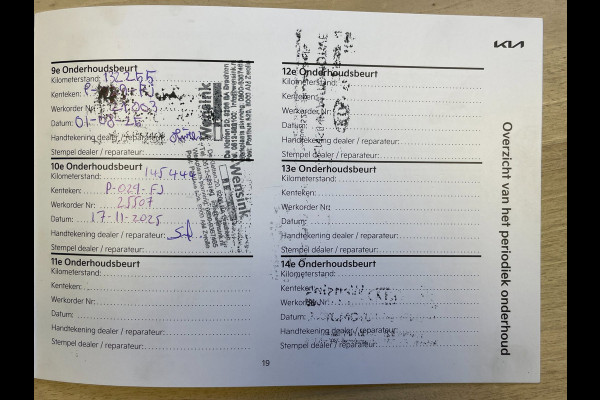 KIA
Overzicht van het periodiek onderhoud
9e Onderhoudsbeurt
Kilometerstand: 132255
Kenteken:
Werkorder Nr:
Datum: 01-08-25
Handtekening dealer / reparateur:
Stempel dealer / reparateur:
Wensink
10e Onderhoudsbeurt
Kilometerstand: 145444
Kenteken: P-029-FJ
Werkorder Nr: 25507
Datum: 17-11-2025
Handtekening dealer / reparateur:
Stempel dealer / reparateur:
Wensink
11e Onderhoudsbeurt
Kilometerstand:
Kenteken:
Werkorder Nr:
Datum:
Handtekening dealer / reparateur:
Stempel dealer / reparateur:
12e Onderhoudsbeurt
Kilometerstand:
Kenteken:
Werkorder Nr:
Datum:
Handtekening dealer / reparateur:
Stempel dealer / reparateur:
13e Onderhoudsbeurt
Kilometerstand:
Kenteken:
Werkorder Nr:
Datum:
Handtekening dealer / reparateur:
Stempel dealer / reparateur:
14e Onderhoudsbeurt
Kilometerstand:
Kenteken:
Werkorder Nr:
Datum:
Handtekening dealer / reparateur:
Stempel dealer / reparateur:
19